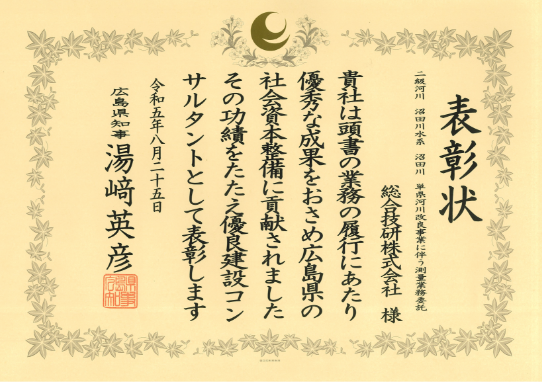 表彰状
二級河川 沼田川水系 沼田川 単県河川改良事業に伴う測量業務委託
総合技研株式会社 様
貴社は頭書の業務の履行にあたり
優秀な成果をおさめ広島県の
社会資本整備に貢献されました
その功績をたたえ優良建設コン
サルタントとして表彰します
令和五年八月二十五日
広島県知事 湯﨑英彦